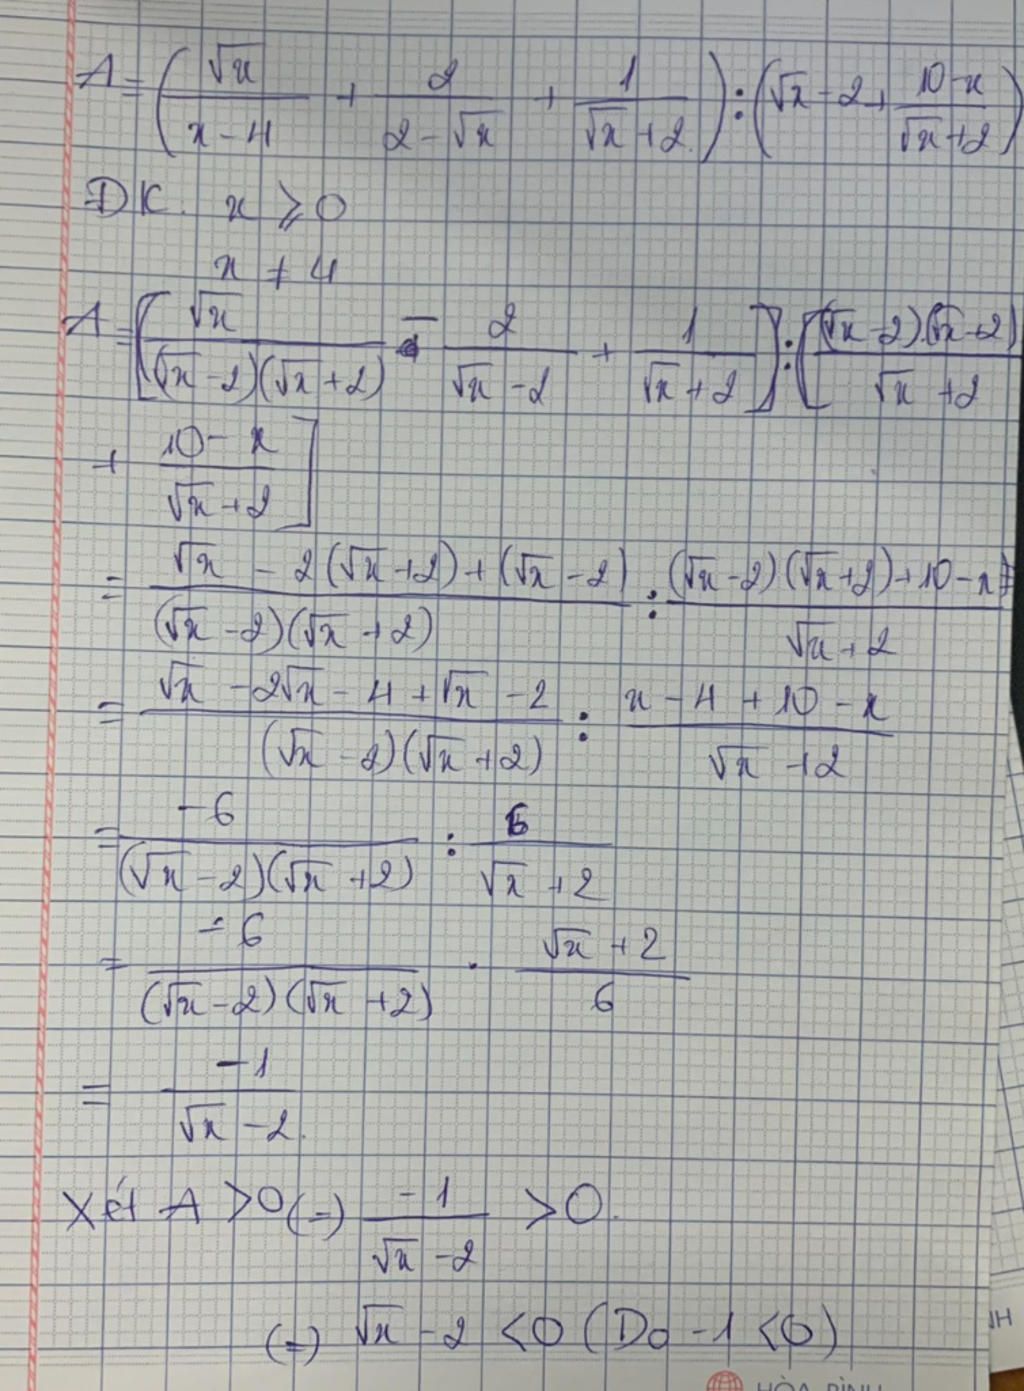 A = (√x/(x-4) + 2/(2-√x) + 1/(√x+2)) : (√x-2 + (10-x)/(√x+2))
ĐK. x ≥ 0
x ≠ 4
A = [√x/((√x-2)(√x+2)) - 2/(√x-2) + 1/(√x+2)] : [(√x-2).(√x+2)/(√x+2)
+ (10-x)/(√x+2)]
= (√x - 2(√x+2) + (√x-2))/((√x-2)(√x+2)) : ((√x-2)(√x+2)+10-x)/(√x+2)
= (√x - 2√x - 4 + √x - 2)/((√x-2)(√x+2)) : (x-4+10-x)/(√x+2)
= -6/((√x-2)(√x+2)) : 6/(√x+2)
= -6/((√x-2)(√x+2)) . (√x+2)/6
= -1/(√x-2).
Xét A > 0 (=) -1/(√x-2) > 0.
(=) √x - 2 < 0 (Do -1 < 0)
HÒA BÌNH